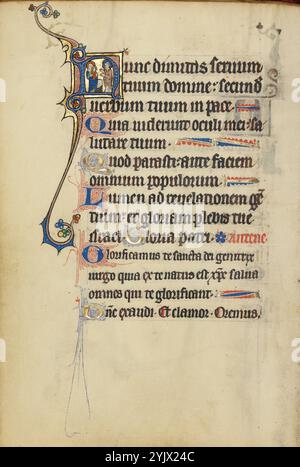 Nunc dimittis seruum
tuum domine: secund̄
uerbum tuum in pace.
Quia uiderunt oculi mei: sa
lutare tuum.
Quod parasti: ante faciem
omnium populorum.
Lumen ad reuelationem gē
tium: et gloriam plebis tue
israel. Gloria patri. Antene
Glorificamus te sancta dei genitrix
uirgo quia ex te natus est xp̄c salua
omnes qui te glorificant.
Dn̄e exaudi. Et clamor. Oremus.
alamy
Image ID: 2YJX24C
www.alamy.com